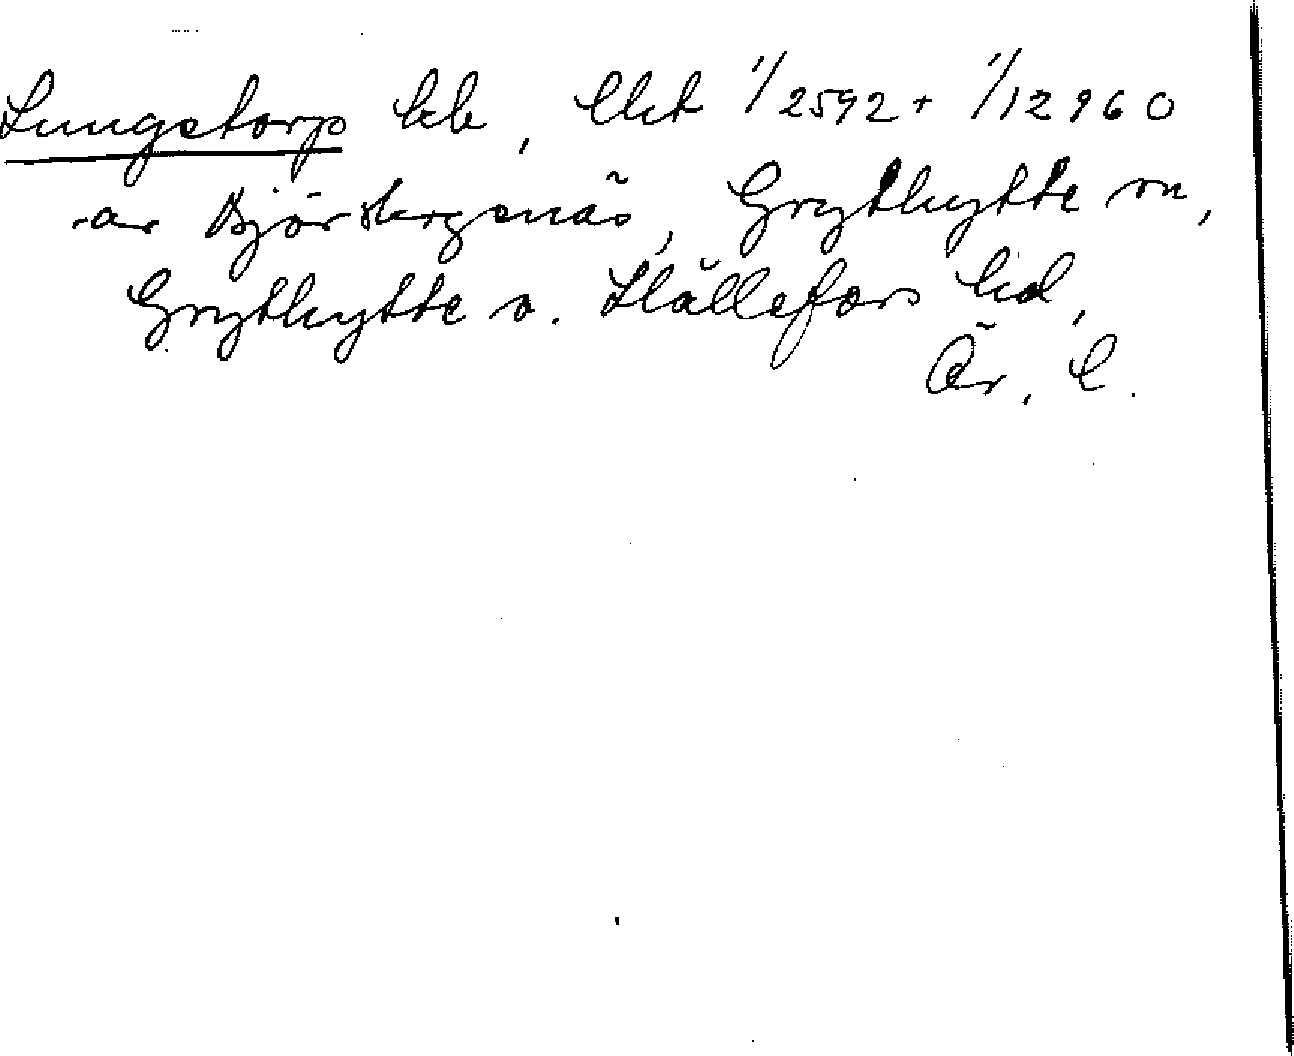 Lungstorp hb, Ekt 1/2592 + 1/12960
av Björskogsnäs, Grythytte sn,
Grythytte o. Hällefors hd,
Ör. l.